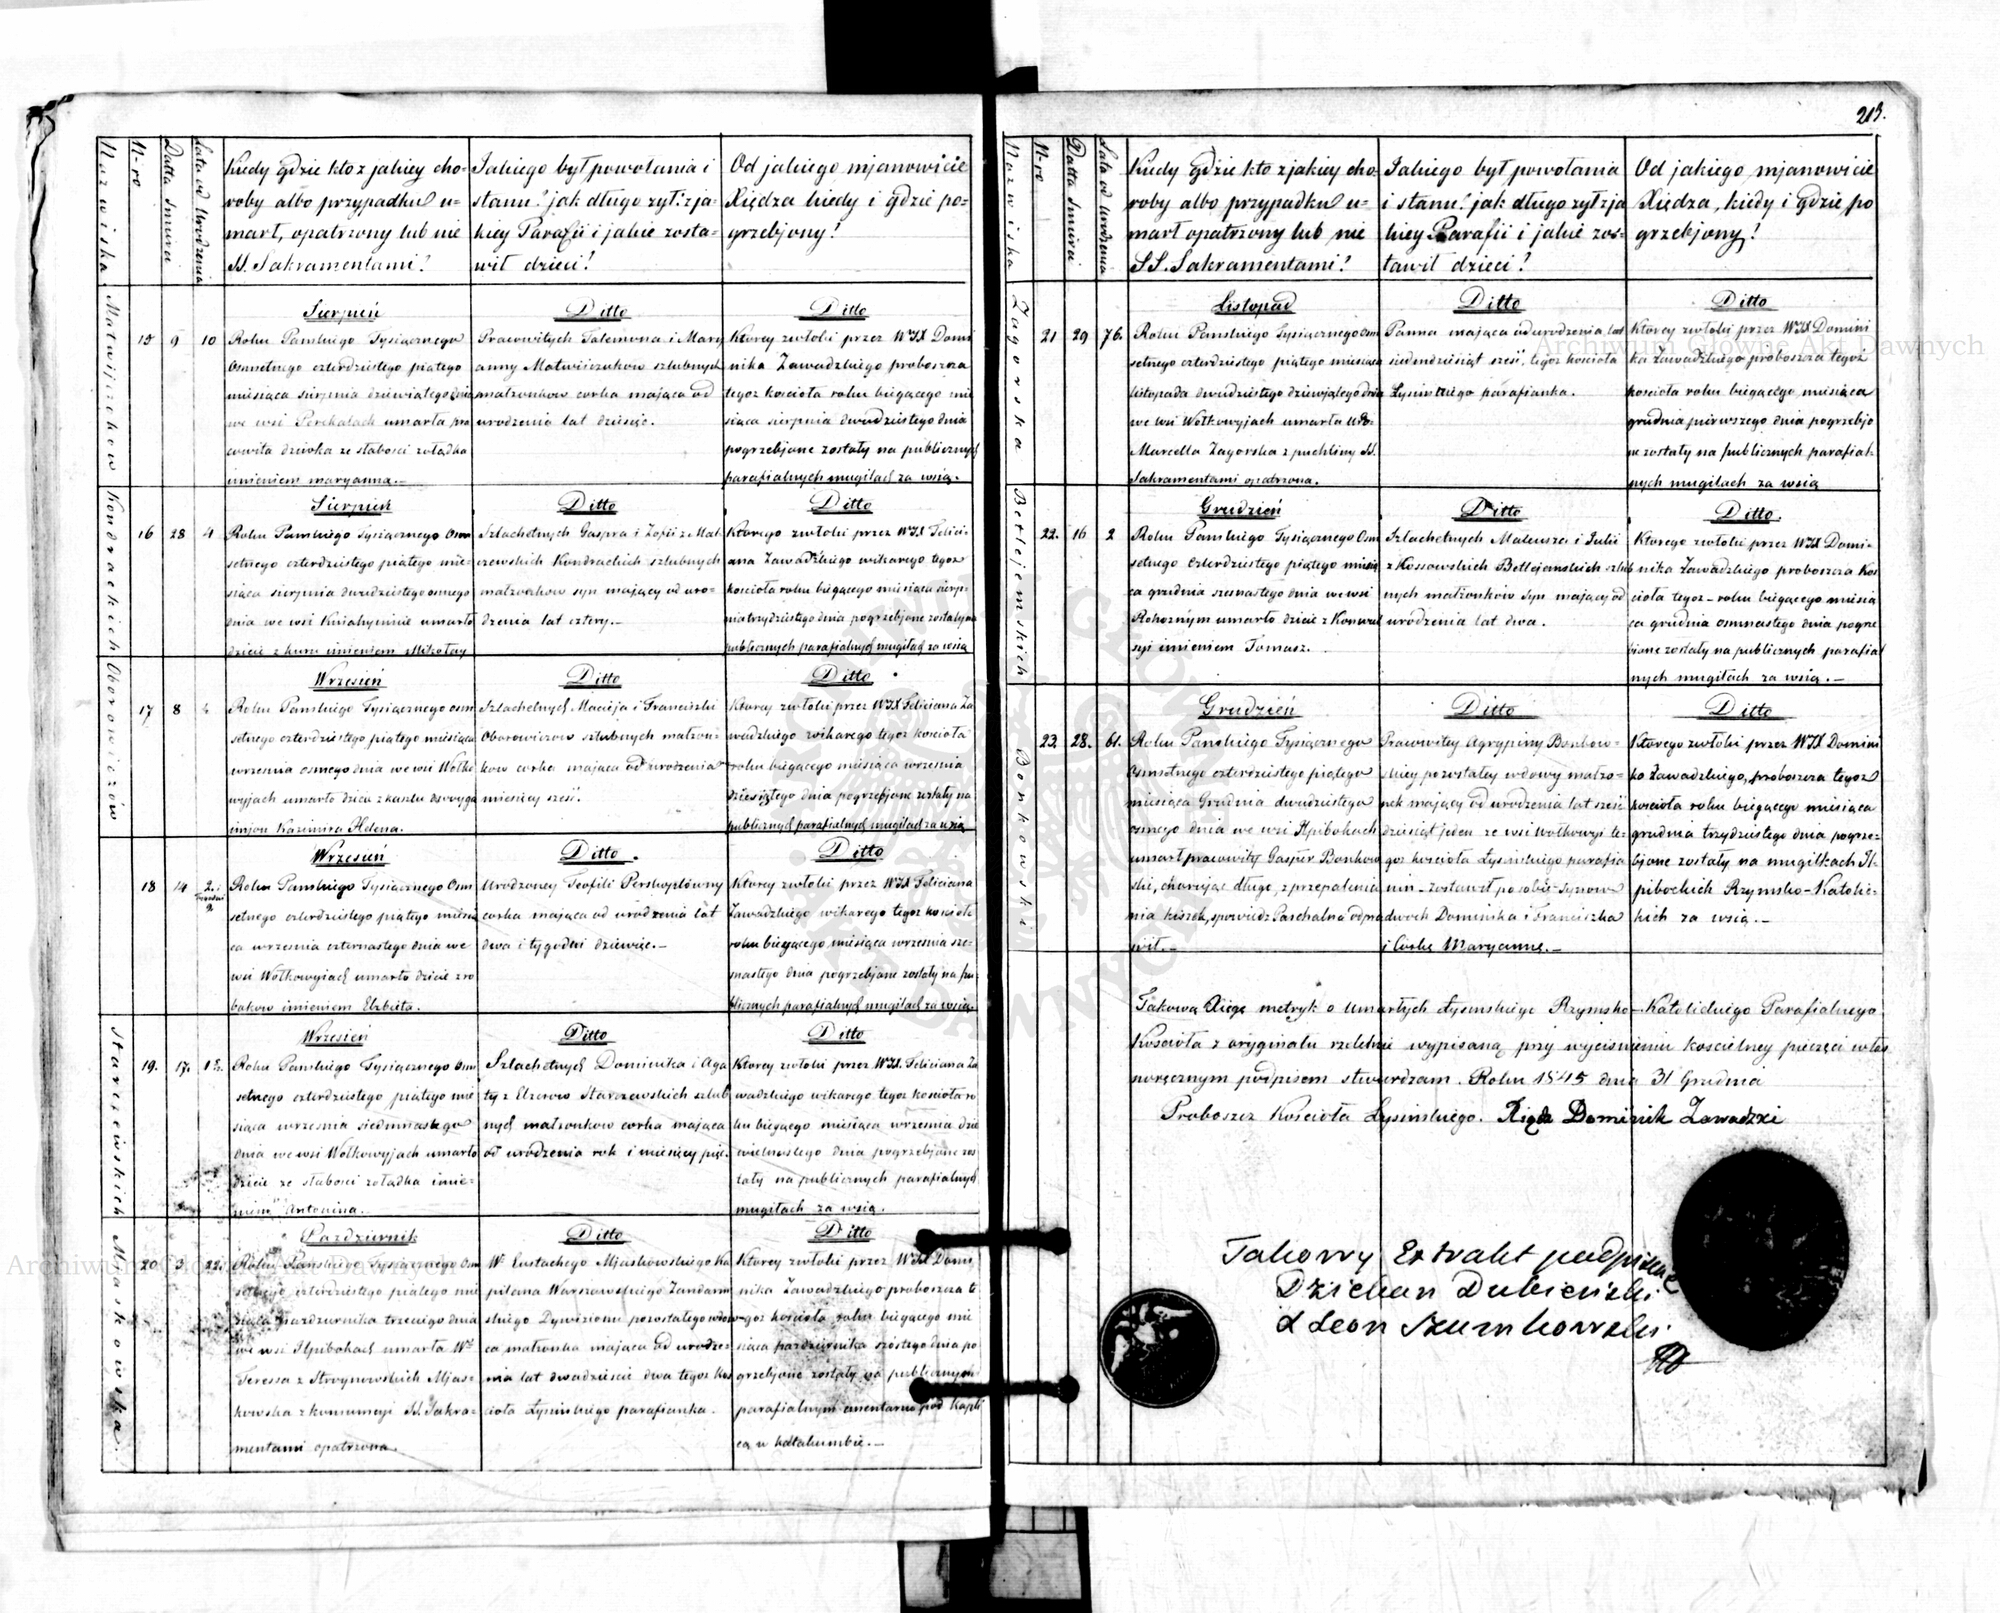 213.
Nazwiska
N-ro
Datta Smierci
Lata od Urodzenia
Kiedy gdzie kto z jakiey cho-
roby albo przypadku u-
marł, opatrzony lub nie
SS. Sakramentami?
Jakiego był powołania i
stanu? jak długo żył? z ja-
kiey Parafii i jakie zosta-
wił dzieci?
Od jakiego mjanowicie
Xiędza kiedy i gdzie po-
grzebjony?
Matwijczukow
15
9
10
Sierpień
Roku Panskiego Tysiącznego
Osmsetnego czterdziestego piątego
miesiąca sierpnia dziewiątego dnia
we wsi Perekałach umarła pra
cowita dziewka ze słabosci żołądka
imieniem maryanna.-
Ditto
Pracowitych Falemona i Mary
anny Matwiiczukow szlubnych
małżonkow corka mająca od
urodzenia lat dziesięć.
Ditto
Ktorey zwłoki przez WJX Domi
nika Zawadzkiego proboszcza
tegoz kościoła roku bieżącego mie
siąca sierpnia dwudziestego dnia
pogrzebjone zostały na publicznych
parafialnych mugiłach za wsią.
Kondrackich
16
28
4
Sierpień
Roku Panskiego Tysiącznego Osm
setnego czterdziestego piątego mie-
siąca sierpnia dwudziestego osmego
dnia we wsi Kniahyninie umarło
dziecie z kuru imieniem Mikołay
Ditto
Szlachetnych Gaspra i Zofii z Mal
czewskich Kondrackich szlubnych
małżonkow syn mający od uro-
dzenia lat cztery.-
Ditto
Ktorego zwłoki przez WJX Felici-
ana Zawadzkiego wikarego tegoz
kościoła roku bieżącego miesiąca sierp-
nia trzydziestego dnia pogrzebjone zostały na
publicznych parafialnych mugiłach za wsią
Oborowiczow
17
8
Wrzesień
Roku Panskiego Tysiącznego osm
setnego czterdziestego piątego miesiąca
wrzesnia osmego dnia we wsi Wołko
wyjach umarło dziecie z kaszlu dwoyga
imjon Kazimira Helena.
Ditto
Szlachetnych Macieja i Franciszki
Oborowiczow szlubnych małżon-
kow corka mająca od urodzenia
miesięcy sześć.
Ditto
Ktorey zwłoki przez WJX Feliciana Za
wadzkiego wikarego tegoz kościoła
roku bieżącego miesiąca wrzesnia
dziesiątego dnia pogrzebjone zostały na
publicznych parafialnych mugiłach za wsią
18
14
2.
9.
Wrzesień
Roku Panskiego Tysiącznego Osm
setnego czterdziestego piątego miesią
ca wrzesnia czternastego dnia we
wsi Wołkowyjach umarło dziecie z ro
bakow imieniem Elzbieta.
Ditto.
Urodzoney Teofili
corka mająca od urodzenia lat
dwa i tygodni dziewięć.-
Ditto
Ktorey zwłoki przez WJX Feliciana
Zawadzkiego wikarego tegoz kościoła
roku bieżącego miesiąca wrzesnia sze-
snastego dnia pogrzebjone zostały na pu
blicznych parafialnych mugiłach za wsią.
Starczewskich
19.
17.
Wrzesień
Roku Panskiego Tysiącznego Osm
setnego czterdziestego piątego mie
siąca wrzesnia siedmnastego
dnia we wsi Wołkowyjach umarło
dziecie ze słabosci żołądka imie-
niem Antonina.-
Ditto
Szlachetnych Dominika i Aga
ty z Starczewskich szlub
nych małżonkow corka mająca
od urodzenia rok i miesięcy pięć.
Ditto
Ktorey zwłoki przez WJX Feliciana Za
wadzkiego wikarego tegoz kościoła ro
ku bieżącego miesiąca wrzesnia dzie
wietnastego dnia pogrzebjone zos
tały na publicznych parafialnych
mugiłach za wsią.
Miaskowska.
20
3
22.
Pazdziernik
Roku Panskiego Tysiącznego Osm
setnego czterdziestego piątego mie
siąca pazdziernika trzeciego dnia
we wsi Hpibokach umarła
Teressa z Stroynowskich Mjas-
kowska z konsumcyi SS. Sakra-
mentami opatrzona.
Ditto
W Eustachego Mjaskowskiego Ka
pitana Warszawskiego Żandarm
skiego Dywizionu pozostałego wdow-
ca małżonka mająca od urodze-
nia lat dwadzieście dwa tegoz Kos
cioła Łysinskiego parafianka.
Ditto
Ktorey zwłoki przez WJX Domi
nika Zawadzkiego proboszcza te
goz kościoła roku bieżącego mie
siąca pazdziernika szostego dnia po
grzebjone zostały na publicznym
parafialnym cmentarzu pod kapli
cą w katakumbie.-
Nazwiska
N-ro
Datta Smierci
Lata od Urodzenia
Kiedy gdzie kto z jakiey cho-
roby albo przypadku u-
marł opatrzony lub nie
SS. Sakramentami?
Jakiego był powołania
i stanu? jak długo żył z ja
kiey Parafii i jakie zos-
tawił dzieci?
Od jakiego mjanowicie
Xiędza, kiedy i gdzie po
grzebjony?
Zagorska
21
29
76.
Listopad
Roku Panskiego Tysiącznego Osm
setnego czterdziestego piątego miesiąca
listopada dwudziestego dziewjątego dnia
we wsi Wołkowyjach umarła Uro-
Marcella Zagorska z puchliny SS.
Sakramentami opatrzona.
Ditto
Panna mająca od urodzenia lat
siedmdziesiąt sześć, tegoz kościoła
Łysinskiego parafianka.
Ditto
Ktorey zwłoki przez WJX Domini
ka Zawadzkiego proboszcza tegoz
kościoła roku bieżącego miesiąca
grudnia pierwszego dnia pogrzebjo
ne zostały na publicznych parafial-
nych mugiłach za wsią
Betlejemskich
22.
16
2
Grudzień
Roku Panskiego Tysiącznego Osm
setnego czterdziestego piątego miesią
ca grudnia szesnastego dnia we wsi
Rohoznym umarło dziecie z Konwul
syi imieniem Tomasz.
Ditto
Szlachetnych Mateusza i Julii
z Kossowskich Betlejemskich szlub
nych małżonkow syn mający od
urodzenia lat dwa.
Ditto.
Ktorego zwłoki przez WJX Domi-
nika Zawadzkiego proboszcza Kos
cioła tegoz-roku bieżącego miesią
ca grudnia osmnastego dnia pogrze
bione zostały na publicznych parafial
nych mugiłach za wsią.-
Bonkowski
23.
28.
61.
Grudzień
Roku Panskiego Tysiącznego
Osmsetnego czterdziestego piątego
miesiąca Grudnia dwudziestego
osmego dnia we wsi Hpibokach
umarł pracowity Gasper Bonkow
ski, chorując długo, z przepalenia
nia kiszek, spowiedz Paschalną odpra
wił.-
Ditto
Pracowitey Agrypiny Bonkow-
skiey pozostałey wdowy małżo-
nek mający od urodzenia lat sześć
dziesiąt jeden ze wsi Wołkowyi te-
goz kościoła Łysinskiego parafia
nin-zostawił po sobie synow
dwoch Dominika i Franciszka
i Corkę Maryannę.-
Ditto
Ktorego zwłoki przez WJX Domini
ka Zawadzkiego, proboszcza tegoz
kościoła roku bieżącego miesiąca
grudnia trzydziestego dnia pogrze-
bjone zostały na mugiłkach H-
pibockich Rzymsko-Katolic-
kich za wsią.-
Takową Xiegę metryk o umarłych Łysinskiego Rzymsko-Katolickiego Parafialnego
Kościoła z oryginału rzetelnie wypisaną przy wyciśnieniu koscielney pieczęci włas
noręcznym podpisem stwierdzam. Roku 1845 dnia 31 Grudnia
Proboszcz Kościoła Łysinskiego. Xiądz Dominik Zawadzki
Takowy Extrakt podpisuię
Dziekan Dubienski
X Leon Szumkowski
Archiwum Główne Akt Dawnych
Archiwum Główne Akt Dawnych